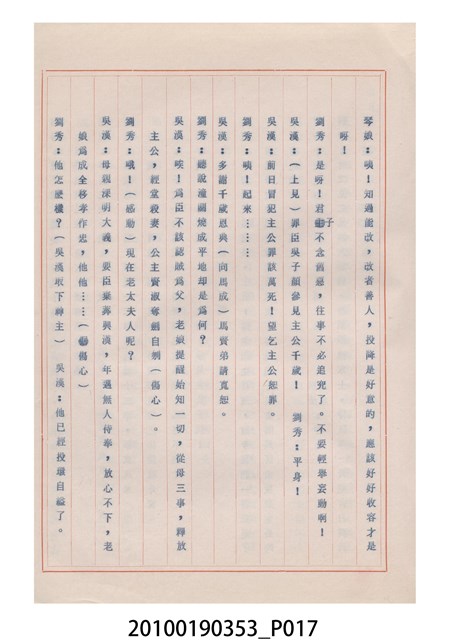 琴娘：咦！知過能改，改者善人，投降是好意的，應該好好收容才是
呀！
劉秀：是呀！君子不念舊惡，往事不必追究了。不要輕舉妄動啊！
吳漢：（上見）罪臣吳子顏參見主公千歲！　劉秀：平身！
吳漢：前日冒犯主公罪該萬死！望乞主公恕罪。
劉秀：咦！起來………
吳漢：多謝千歲恩典（向馬成）馬賢弟請寬恕。
劉秀：聽說潼關燒成平地却是為何？
吳漢：唉！為臣不該認賊為父，老娘提醒始知一切，從母三事，釋放
主公，經堂殺妻，公主賢淑奪劍自刎（傷心）。
劉秀：哦！（感動）現在老太夫人呢？
吳漢：母親深明大義，要臣棄莽興漢，年邁無人侍奉，放心不下，老
娘為成全移孝作忠，他他……（傷心）
劉秀：他怎麼樣？（吳漢取下神主）　吳漢：他已經投環自縊了。
20100190353_P017